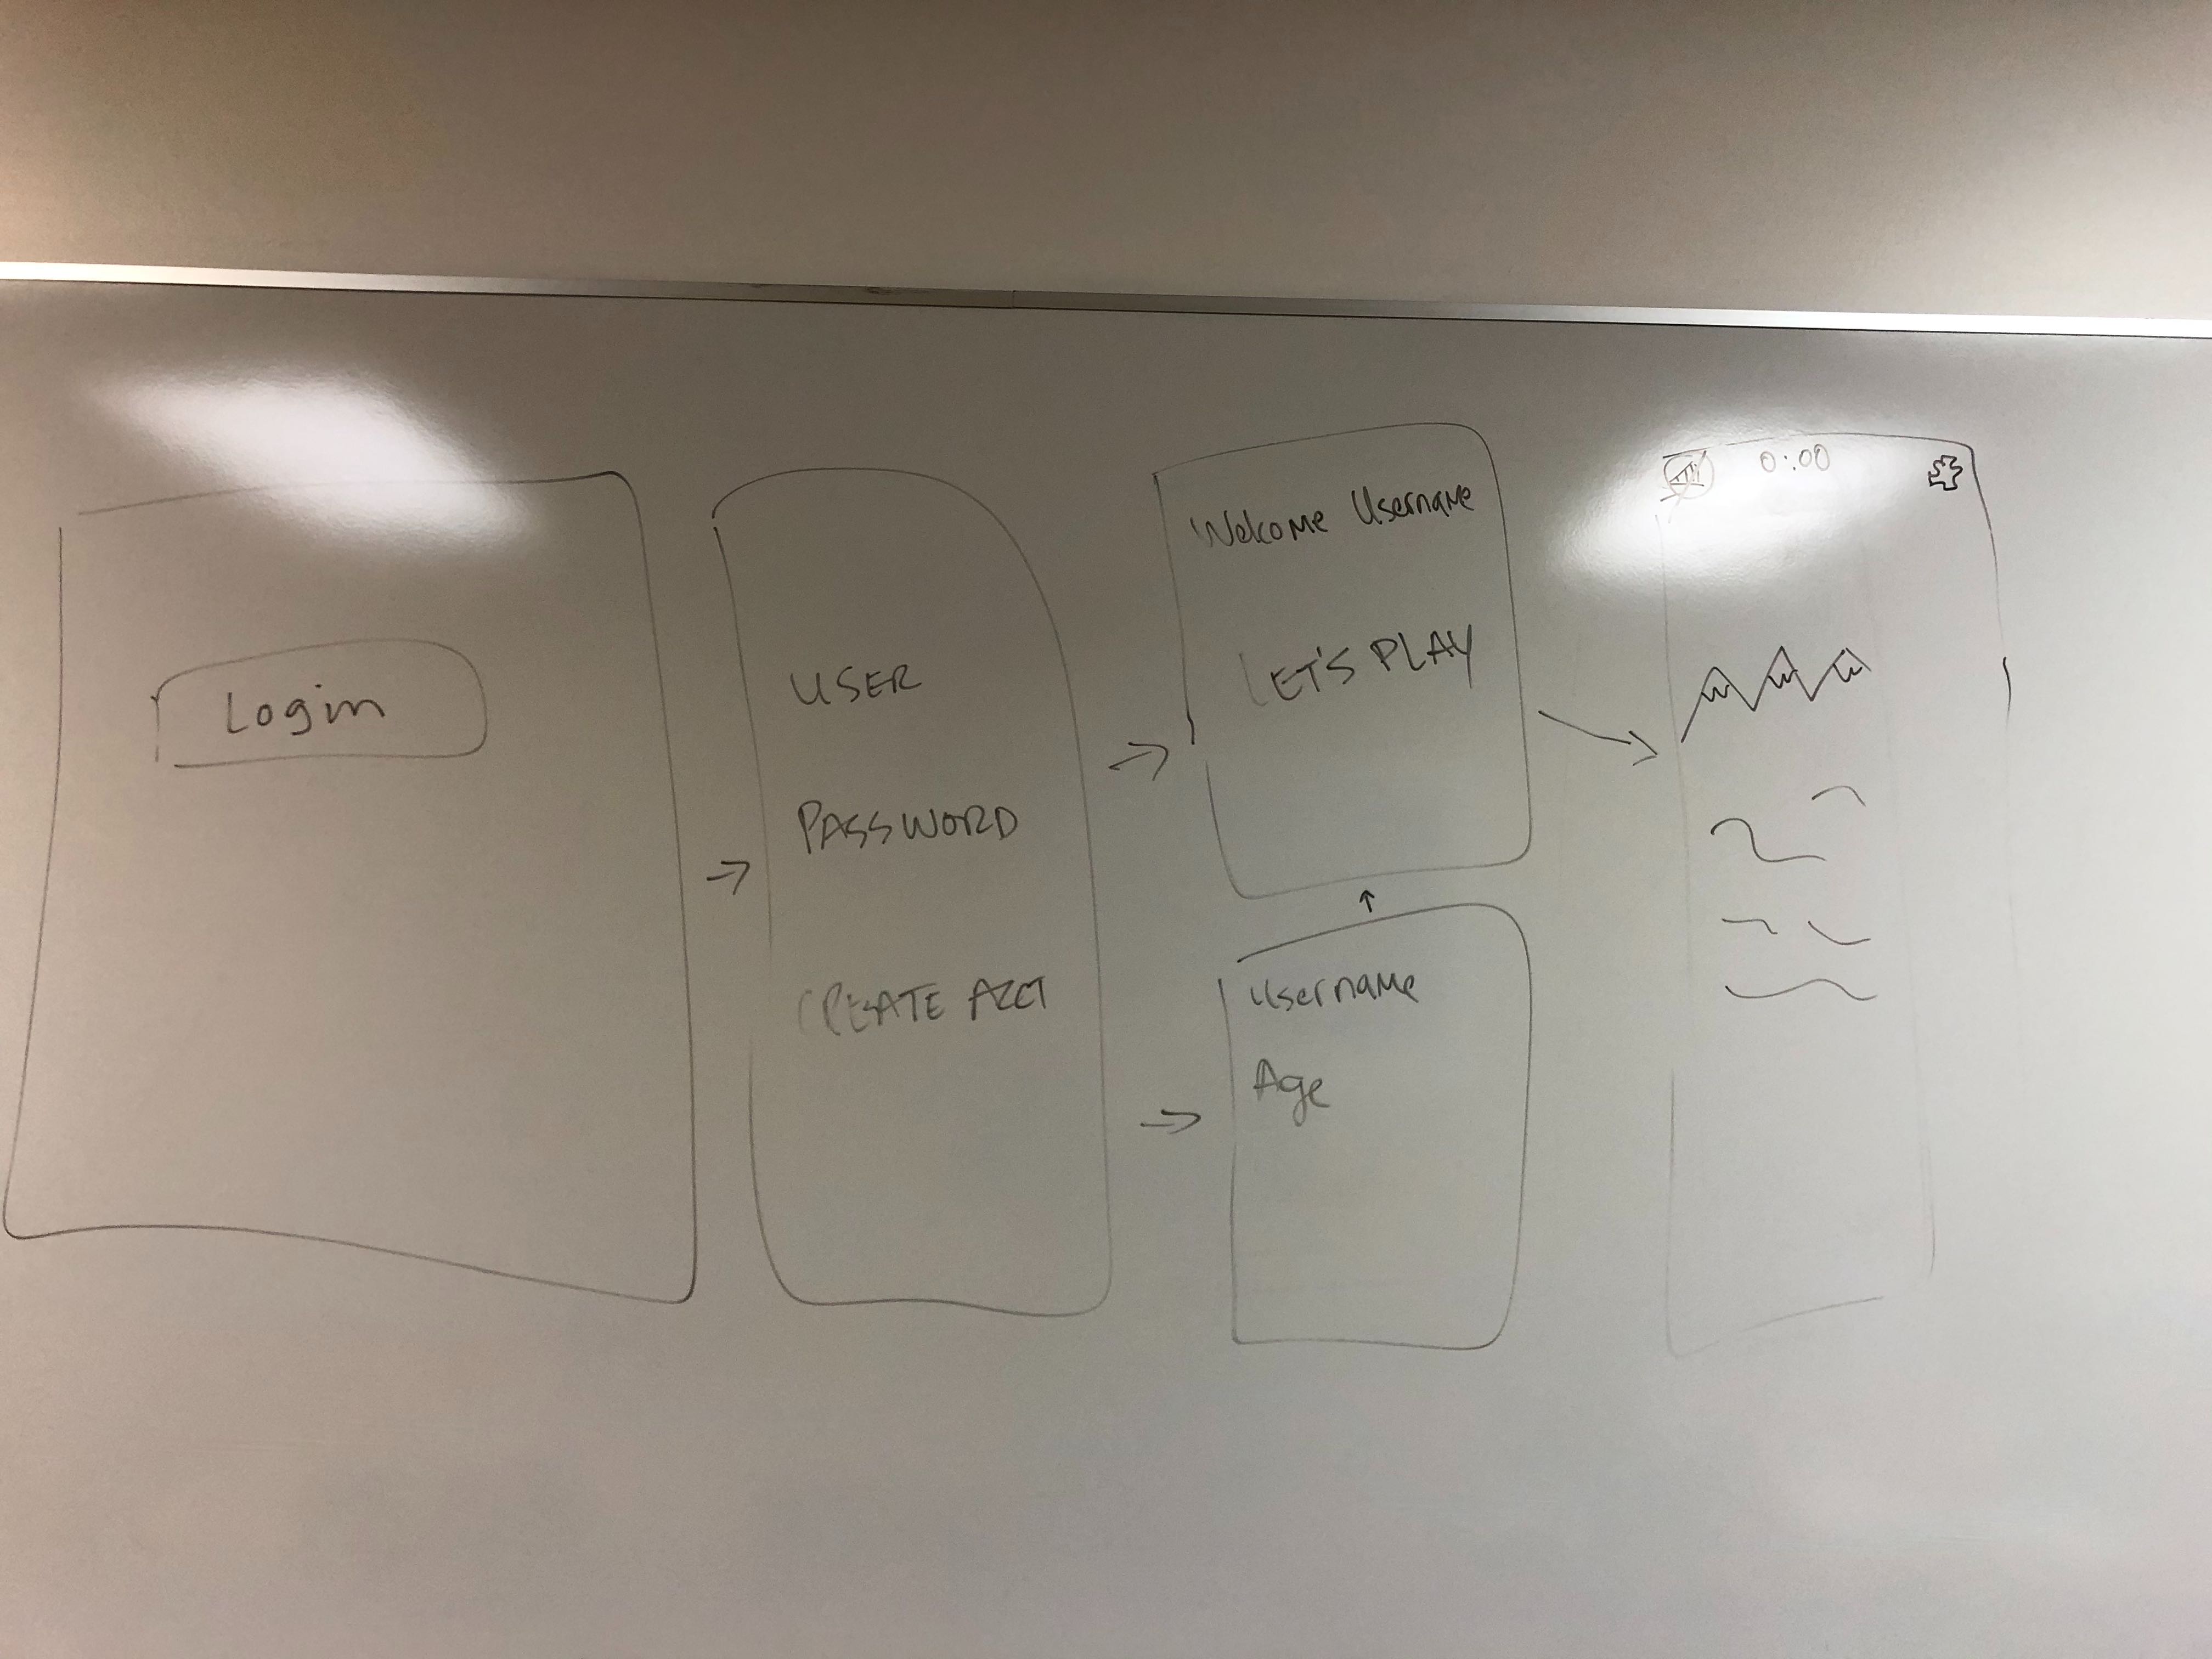 Login
USER
PASSWORD
CREATE ACCT
Welcome Username
LET'S PLAY
Username
Age
0:00